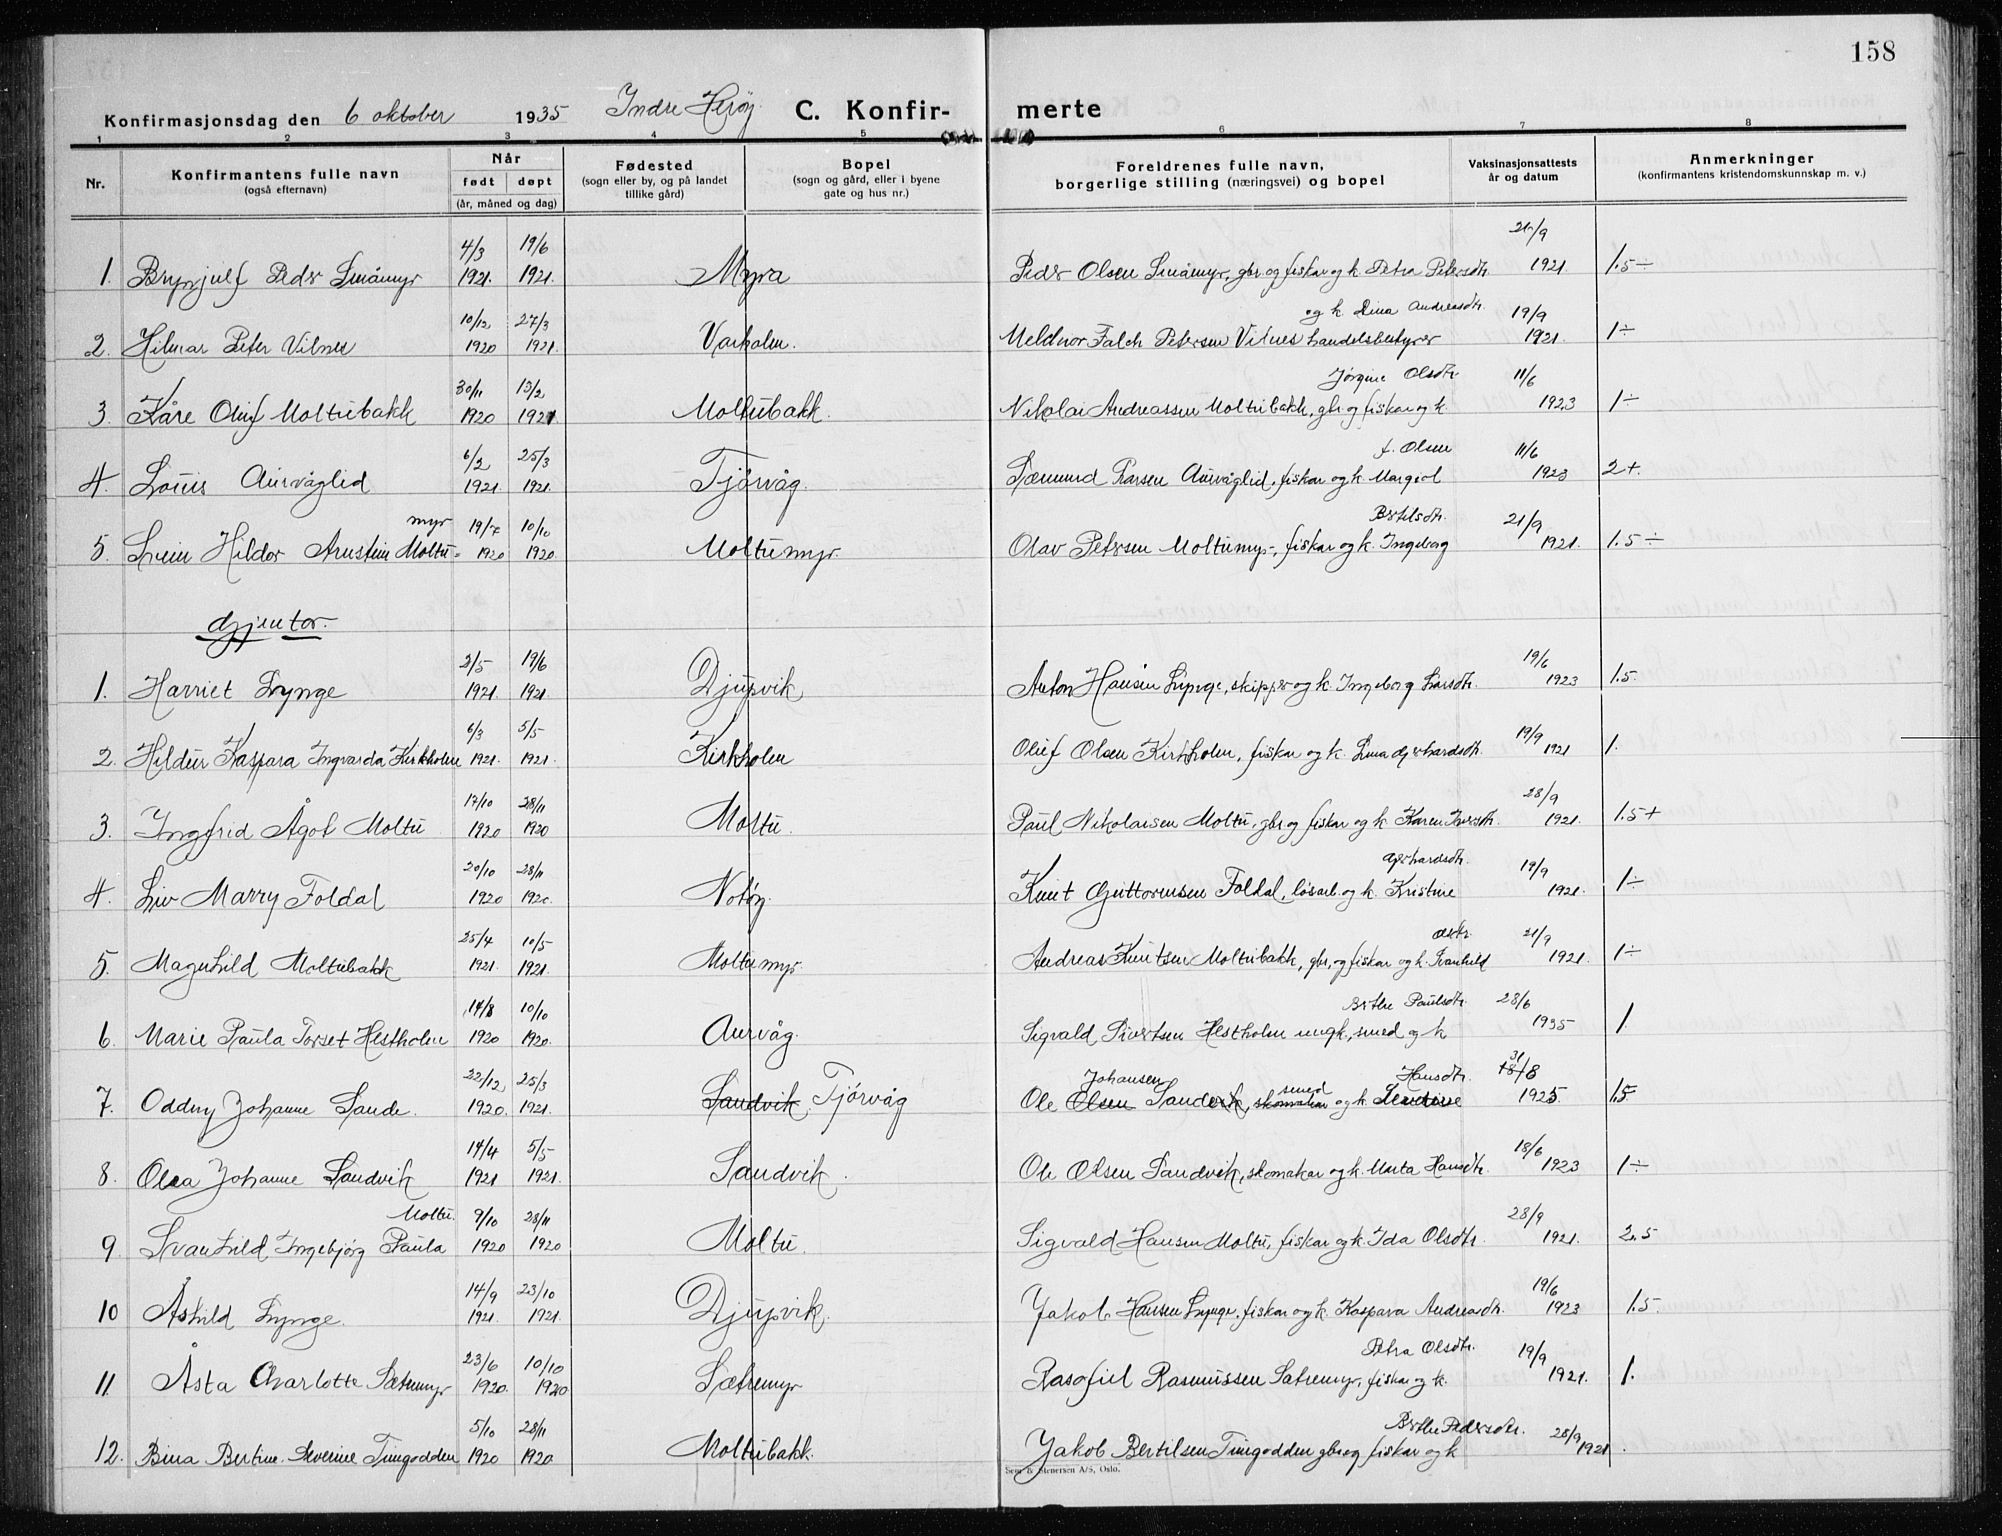 158
Konfirmasjonsdag den 6 oktober 1935 Indre Herøy. C. Konfir- merte
1 2 3 4 5 6 7 8
Nr. Konfirmantens fulle navn (også efternavn) Når født døpt (år, måned og dag) Fødested (sogn eller by, og på landet tillike gård) Bopel (sogn og gård, eller i byene gate og hus nr.) Foreldrenes fulle navn, borgerlige stilling (næringsvei) og bopel Vaksinasjonsattests år og datum Anmerkninger (konfirmantens kristendomskunnskap m. v.)
1. Brynjulf Peder Småmyr 4/3 1921. 19/6 1921. Myra Peder Olsen Småmyr, gbr og fiskar og k. Petra Petersdtr. 21/9 1921. 1.5 ÷
og k. Dina Andreasdtr.
2. Hilmar Peter Vilnes 10/12 1920 27/3 1921. Varholm. Meldvor Falch Petersen Vilnes handelsbestyrer 19/9 1921. 1 ÷
Jørgine Olsdtr.
3. Kåre Oluf Moltubakk 30/11 1920 13/2 1921 Moltubakk. Nikolai Andreassen Moltubakk, gbr og fiskar og k. 11/6 1923 1 ÷
f. Olsen
4. Louis Aurvåglid 6/2 1921. 25/3 1921. Tjørvåg. Sæmund Larsen Aurvåglid, fiskar og k. Margot 11/6 1923 2+.
myr Bertelsdtr.
5. Svein Hilder Arnstein Moltu- 19/7 1920 10/10 1920. Moltumyr Olav Petersen Moltumyr, fiskar og k. Ingeborg 21/9 1921. 1.5 ÷
Gjentor.
1. Harriet Lynge 2/5 1921. 19/6 1921. Djupvik Anton Hansen Lynge, skipper og k. Ingeborg Larsdtr. 19/6 1923 1.5.
2. Hildur Kaspara Ingvarda Kirkholm 6/3 1921. 5/5 1921. Kirkholm Oluf Olsen Kirkholm, fiskar og k. Lina Gjerhardsdtr. 19/9 1921 1.
3. Ingfrid Ågot Moltu 17/10 1920 28/11 1920 Moltu. Paul Nikolaisen Moltu, gbr og fiskar og k. Karen Iversdtr. 28/9 1921. 1.5+
Gjerhardsdtr.
4. Liv Marry Foldal 20/10 1920 28/11 1920. Notøy. Knut Guttormsen Foldal, løsarb. og k. Kristine 19/9 1921. 1 ÷
5. Magnhild Moltubakk 25/4 1921. 10/5 1921. Moltumyr. Andreas Knutsen Moltubakk, gbr, og fiskar og k. Svanhild 21/9 1921. 1 ÷
Berthe Paulsdtr.
6. Marie Paula Torset Hestholm 14/8 1920 10/10 1920. Aurvåg. Sigvald Sivertsen Hestholm ungk., smed og k 28/6 1935 1.
Johansen smed Hansdtr. 31
7. Oddny Johanne Sande. 22/12 1920. 25/3 1921. Sandvik, Tjørvåg Ole Olsen Sandvik, skomakar og k. 18/8 1925 1.5
8. Olea Johanne Sandvik 14/4 1921 5/5 1921. Sandvik. Ole Olsen Sandvik, skomakar og k. Marta Hansdtr. 18/6 1923 1 ÷
Moltu.
9. Svanhild Ingebjørg Paula 9/10 1920 28/11 1920 Moltu. Sigvald Hansen Moltu, fiskar og k. Ida Olsdtr. 28/9 1921. 2.5
10 Åshild Lynge. 14/9 1921. 23/10 1921. Djupvik. Jakob Hansen Lynge, fiskar og k. Kaspara Andreasdtr. 19/6 1923 1.5.
Petra Olsdtr.
11. Åsta Charlotte Sætremyr 23/6 1920. 10/10 1920 Sætremyr Rasofiel Rasmussen Sætremyr, fiskar og k. 19/9 1921. 1.
Berthe Pedersdtr.
12. Bina Bertine Severine Tungodden 5/10 1920 28/11 1920. Moltubakk. Jakob Bertilsen Tungodden gbr og fiskar og k 28/9 1921.
Sem & Stenersen A/S, Oslo.